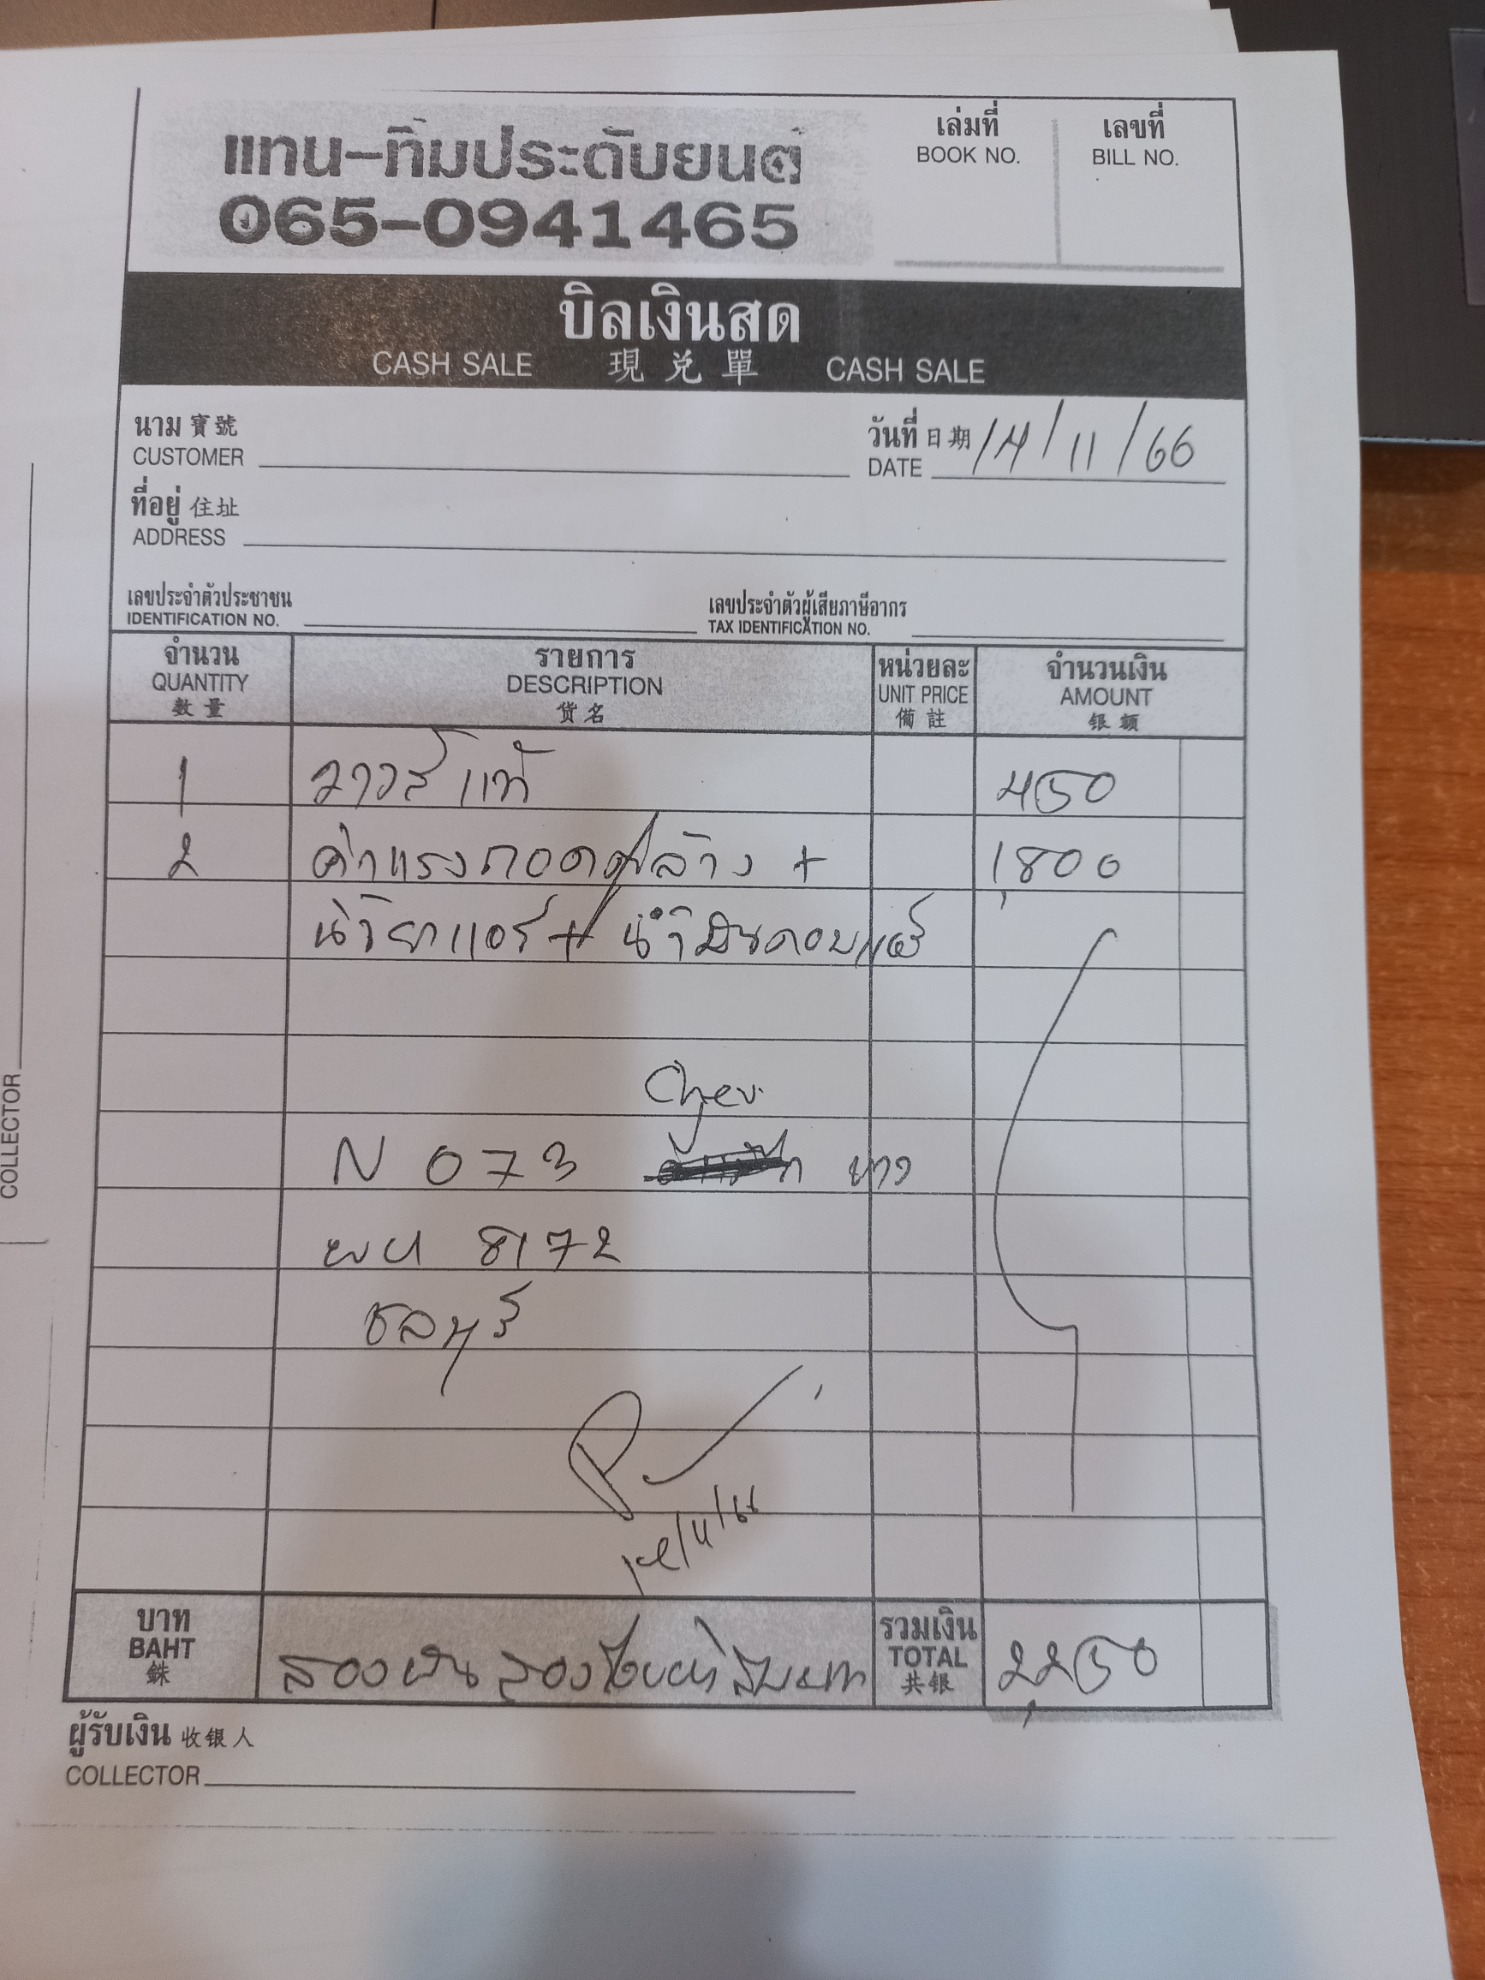 แทน-ทิมประดับยนต์
065-0941465
เล่มที่
BOOK NO.
เลขที่
BILL NO.
บิลเงินสด
CASH SALE 現兑單 CASH SALE
นาม 寶號
CUSTOMER
วันที่ 日期 14/11/66
DATE
ที่อยู่ 住址
ADDRESS
เลขประจำตัวประชาชน
IDENTIFICATION NO.
เลขประจำตัวผู้เสียภาษีอากร
TAX IDENTIFICATION NO.
จำนวน รายการ หน่วยละ จำนวนเงิน
QUANTITY DESCRIPTION UNIT PRICE AMOUNT
數量 貨名 備註 银額
1 วาวล์ แท้ 450
2 ค่าแรงถอดตู้ล้าง + 1,800
น้ำยาแอร์ + น้ำมันคอมแอร์
Chev.
N 073
ผน 8172
ชลบุรี
14/11/66
บาท
BAHT
銖
สองพันสองร้อยห้าสิบบาท
รวมเงิน
TOTAL
共银
2,250
ผู้รับเงิน 收银人
COLLECTOR
COLLECTOR